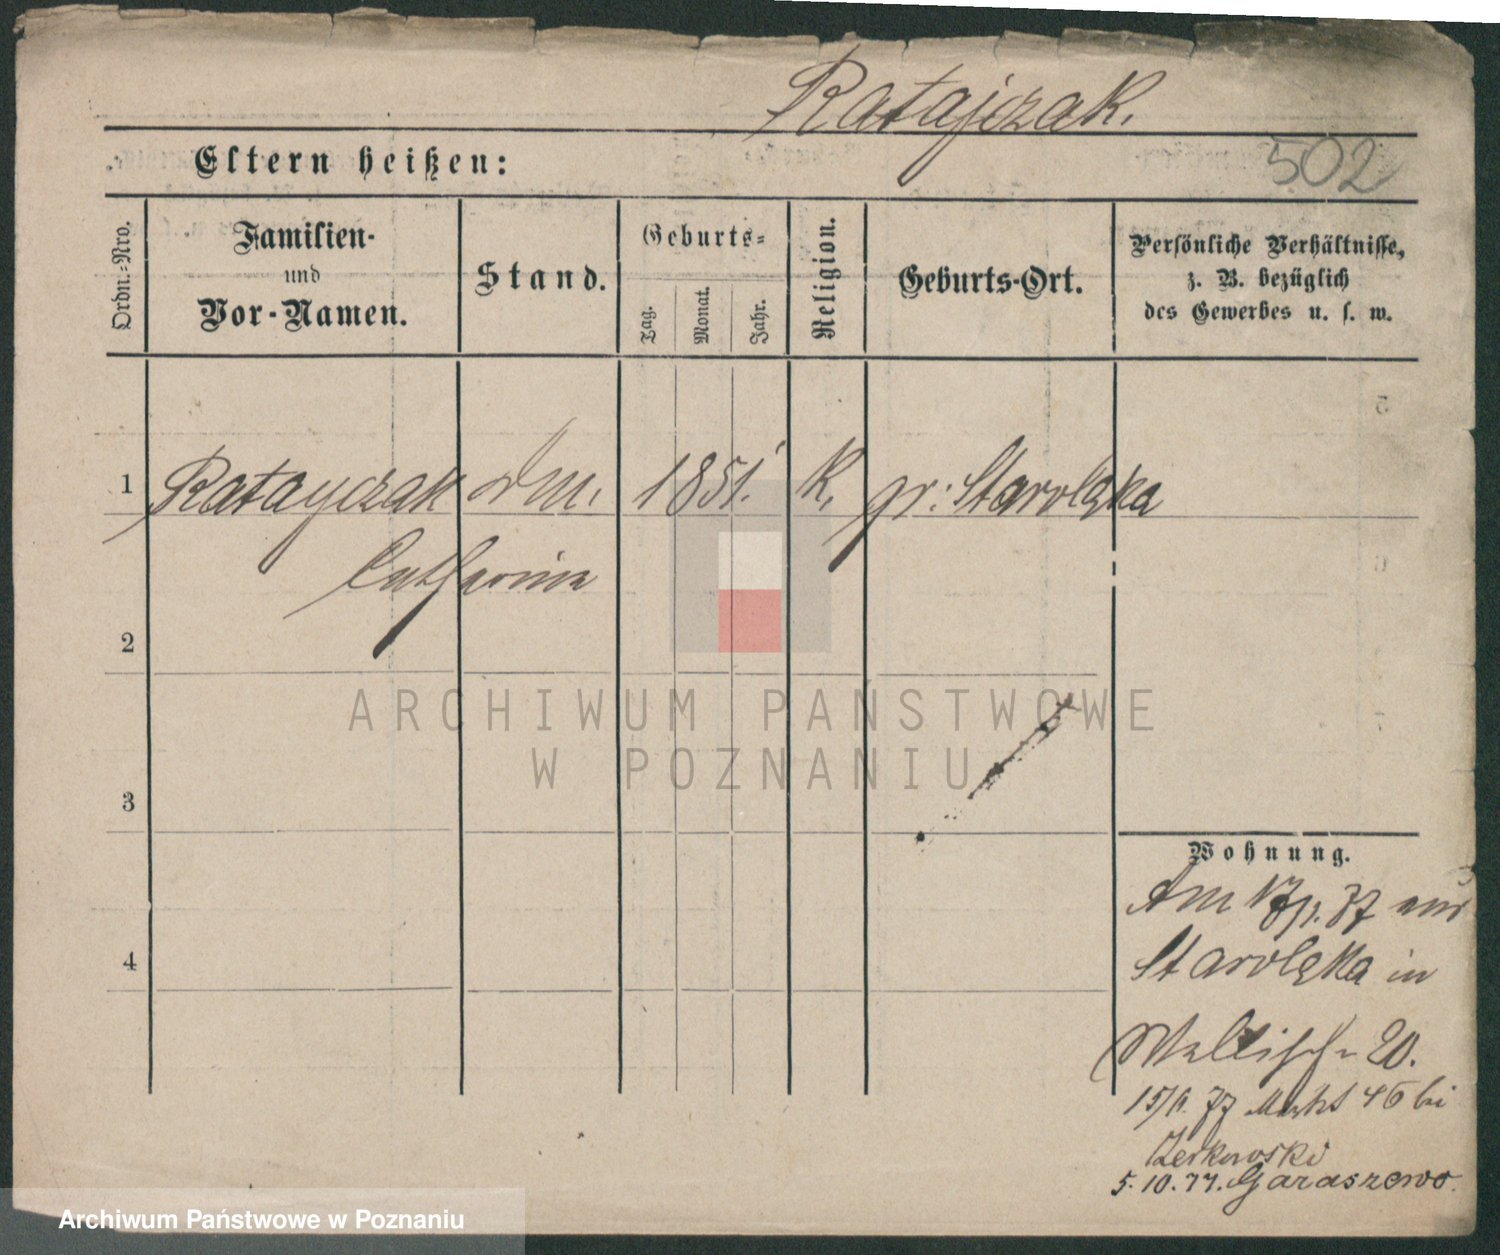 Ratajczak.
Eltern heißen:
502
Ordn.-Nro.
Familien-
und
Vor-Namen.
Stand.
Geburts-
Tag.
Monat.
Jahr.
Religion.
Geburts-Ort.
Persönliche Verhältnisse,
z. B. bezüglich
des Gewerbes u. s. w.
1 Ratayczak 1851. K. gr: Starolęka
Catharina
2
3
4
Wohnung.
Am 77 aus
Starolęka in
Wallisch 20.
15/6. 77 Markt 46 bei
Zerkowski
5.10.77. Garaszewo.
ARCHIWUM PAŃSTWOWE
W POZNANIU
Archiwum Państwowe w Poznaniu